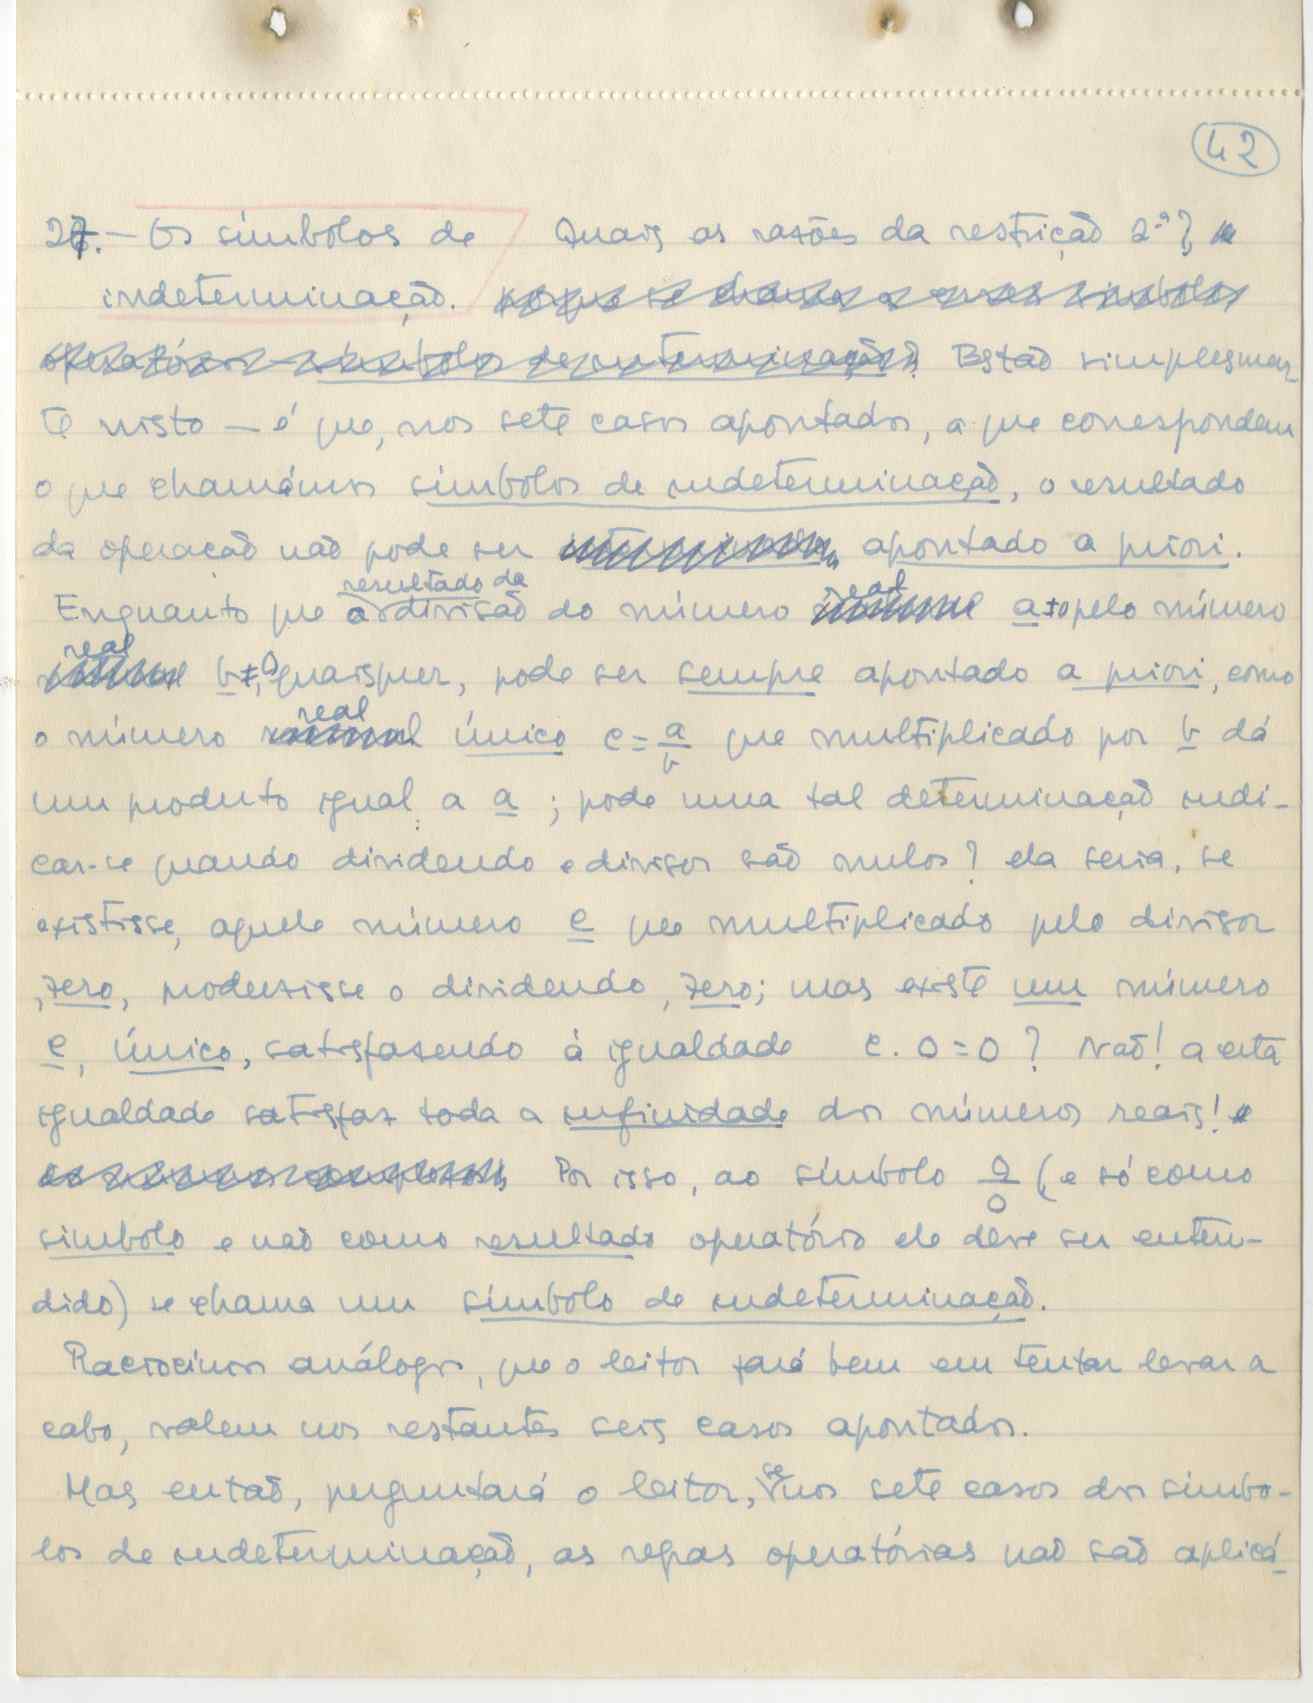 42
27. — Os símbolos de Quais as razões da restrição 2.ª?
indeterminação.
Estão simplesmen
te nisto — é que, nos sete casos apontados, a que correspondem
o que chamámos símbolos de indeterminação, o resultado
da operação não pode ser apontado a priori.
resultado da real
Enquanto que o divisão do número a≠0 pelo número
real
b≠0, quaisquer, pode ser sempre apontado a priori, como
real
o número único c = a/b que multiplicado por b dá
um produto igual a a; pode uma tal determinação indi-
car-se quando dividendo e divisor são nulos? ela seria, se
existisse, aquele número c que multiplicado pelo divisor
, zero, produzisse o dividendo, zero; mas existe um número
c, único, satisfazendo à igualdade c . 0 = 0 ? Não! a esta
igualdade satisfaz toda a infinidade dos números reais!
Por isso, ao símbolo 0/0 (e só como
símbolo e não como resultado operatório ele deve ser enten-
dido) se chama um símbolo de indeterminação.
Raciocínios análogos, que o leitor fará bem em tentar levar a
cabo, valem nos restantes seis casos apontados.
se
Mas então, perguntará o leitor, nos sete casos dos símbo-
los de indeterminação, as regras operatórias não são aplicá-